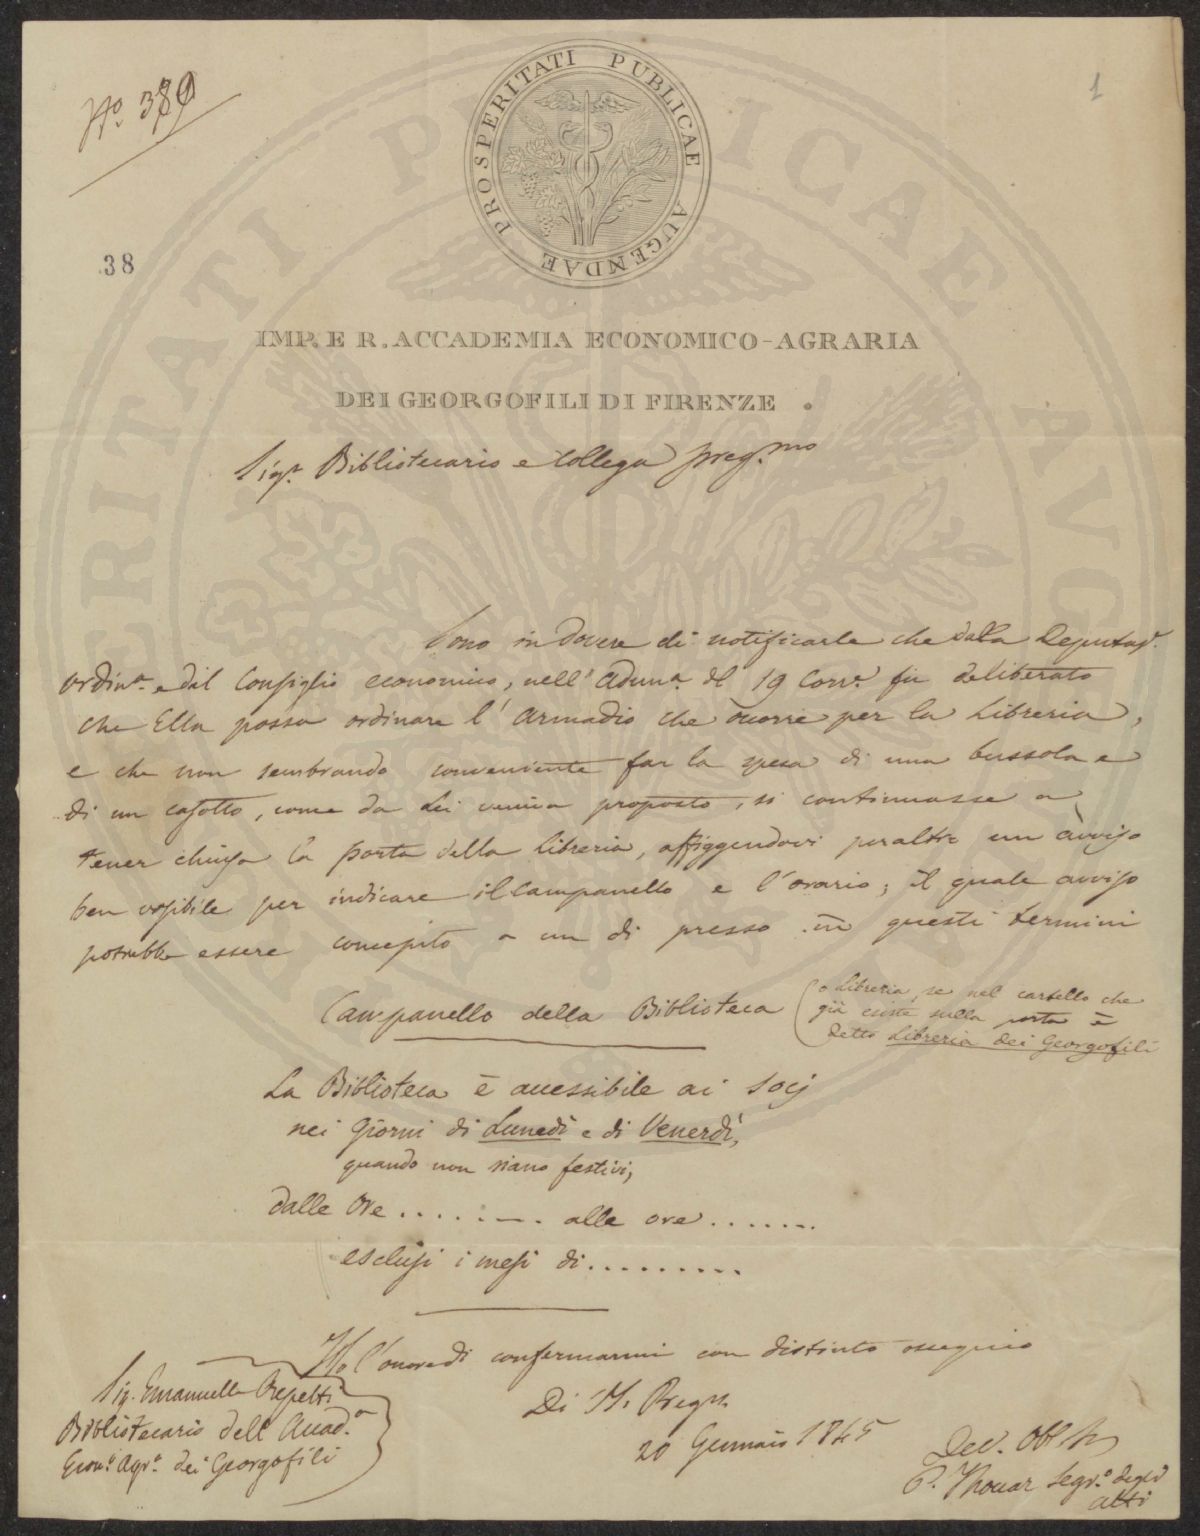 N.º 389
1
PROSPERITATI PUBLICAE AUGENDAE
38
IMP. E R. ACCADEMIA ECONOMICO-AGRARIA
DEI GEORGOFILI DI FIRENZE.
Sigr. Bibliotecario e Collega preg.mo
Sono in dovere di notificarle che dalla Deputazº.
ordinª. e dal Consiglio economico, nell'Adunª. del 19 Corrº. fu deliberato
che Ella possa ordinare l'Armadio che occorre per la Libreria,
e che non sembrando conveniente far la spesa di una bussola e
di un casotto, come da Lei veniva proposto, si continuasse a
tener chiusa la porta della Libreria, affiggendovi peraltro un avviso
ben visibile per indicare il campanello e l'orario; il quale avviso
potrebbe essere concepito a un di presso in questi termini
Campanello della Biblioteca
(o Libreria, se nel cartello che
già esiste sulla porta è
detto Libreria dei Georgofili
La Biblioteca è accessibile ai Socj
nei Giorni di Lunedì e di Venerdì,
quando non siano festivi,
dalle Ore ......... alle ore .......
esclusi i mesi di .........
Ho l'onore di confermarmi con distinto ossequio
Di V. S. Pregma
20 Gennaio 1845
Dev. Obb.
P. Thouar Segrº. degli
atti
Sig. Emanuelle Repetti
Bibliotecario dell'Accadª.
Econº. Agrª. dei Georgofili